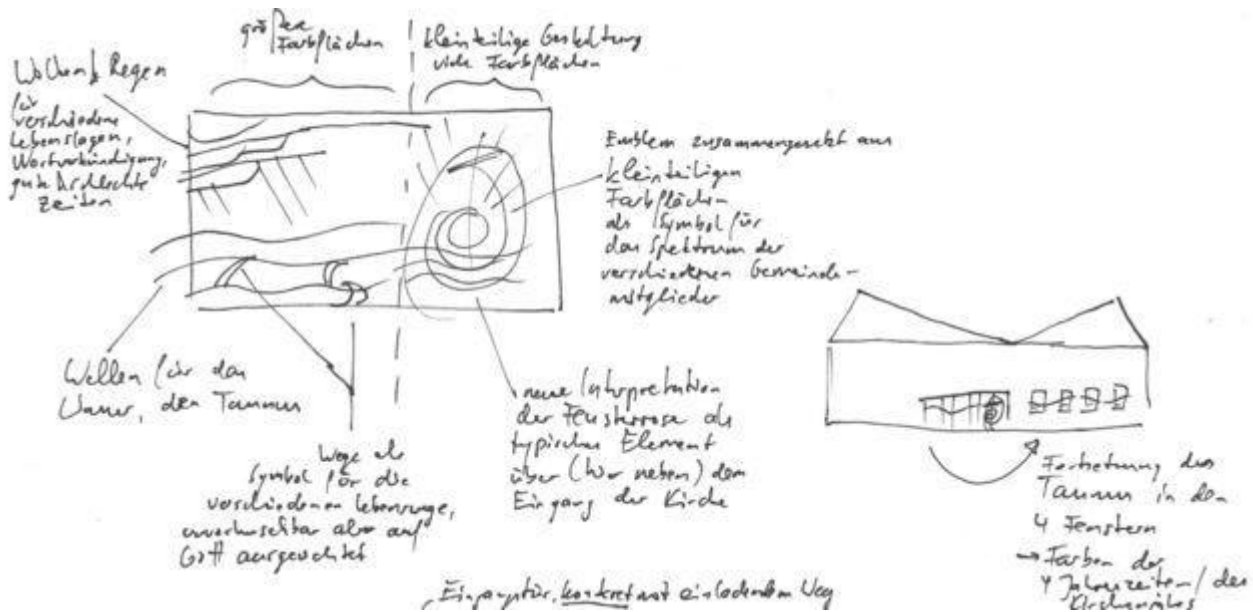 größere
Farbflächen
kleinteilige Gestaltung
viele Farbflächen
Wolken & Regen
für
verschiedene
Lebenslagen,
Wortverkündigung,
gute & schlechte
Zeiten
Emblem zusammengesetzt aus
kleinteiligen
Farbflächen
als Symbol für
das Spektrum der
verschiedenen Gemeinde-
mitglieder
Wellen für das
den Taunus
Wege als
Symbol für die
verschiedenen Lebenswege,
aber auf
Gott ausgerichtet
neue Interpretation
der Fensterrose als
typisches Element
über (hier neben) dem
Eingang der Kirche
Fortsetzung des
Taunus in den
4 Fenstern
→ Farben der
4 Jahreszeiten / des
Kirchenjahres
Eingangstür, konkret mit einladendem Weg